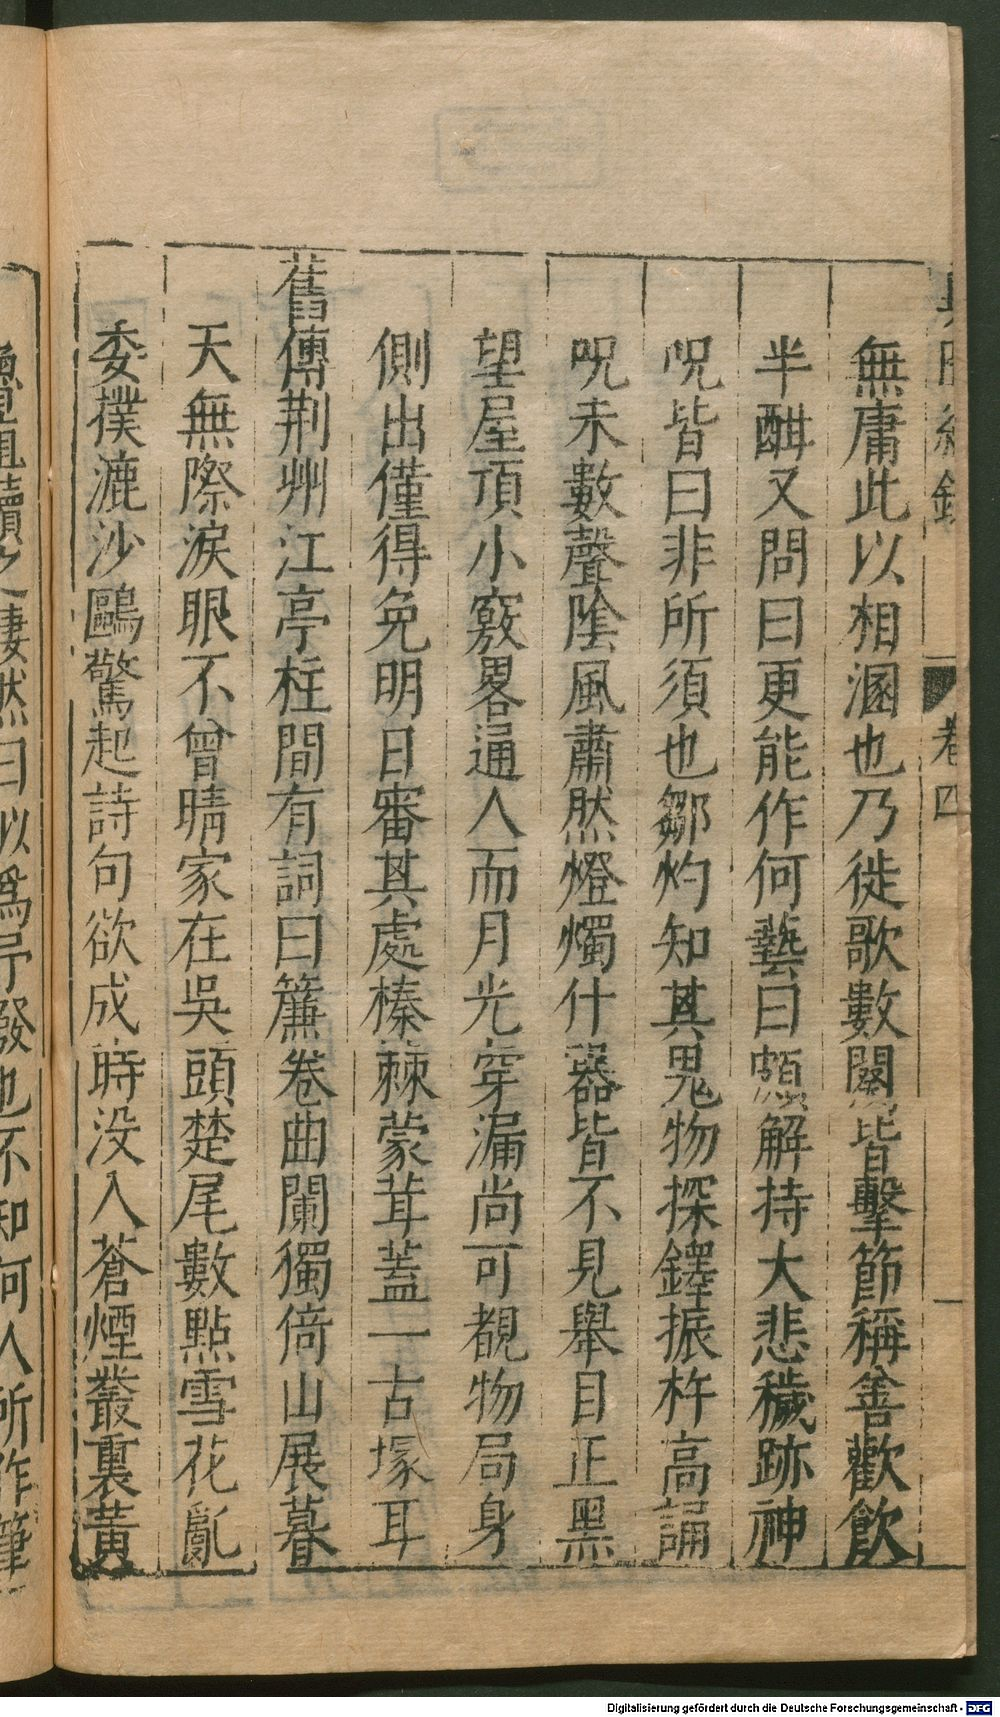 卷四
無庸此以相溷也乃徙歌數闋皆擊節稱善歡飲
半酣又問曰更能作何藝曰頗解持大悲穢跡神
呪皆曰非所須也鄒灼知其鬼物探鐸振杵高誦
呪未數聲陰風肅然燈燭什器皆不見舉目正黑
望屋頂小竅畧通人而月光穿漏尚可覩物局身
側出僅得免明日審其處榛蕀蒙茸蓋一古塚耳
舊傳荆州江亭柱間有詞曰簾卷曲闌獨倚山展暮
天無際淚眼不曾晴家在吳頭楚尾數點雪花亂
委撲漉沙鷗驚起詩句欲成時没入蒼煙叢裏黃
淒然曰似爲予發也不知何人所作筆
Digitalisierung gefördert durch die Deutsche Forschungsgemeinschaft - DFG